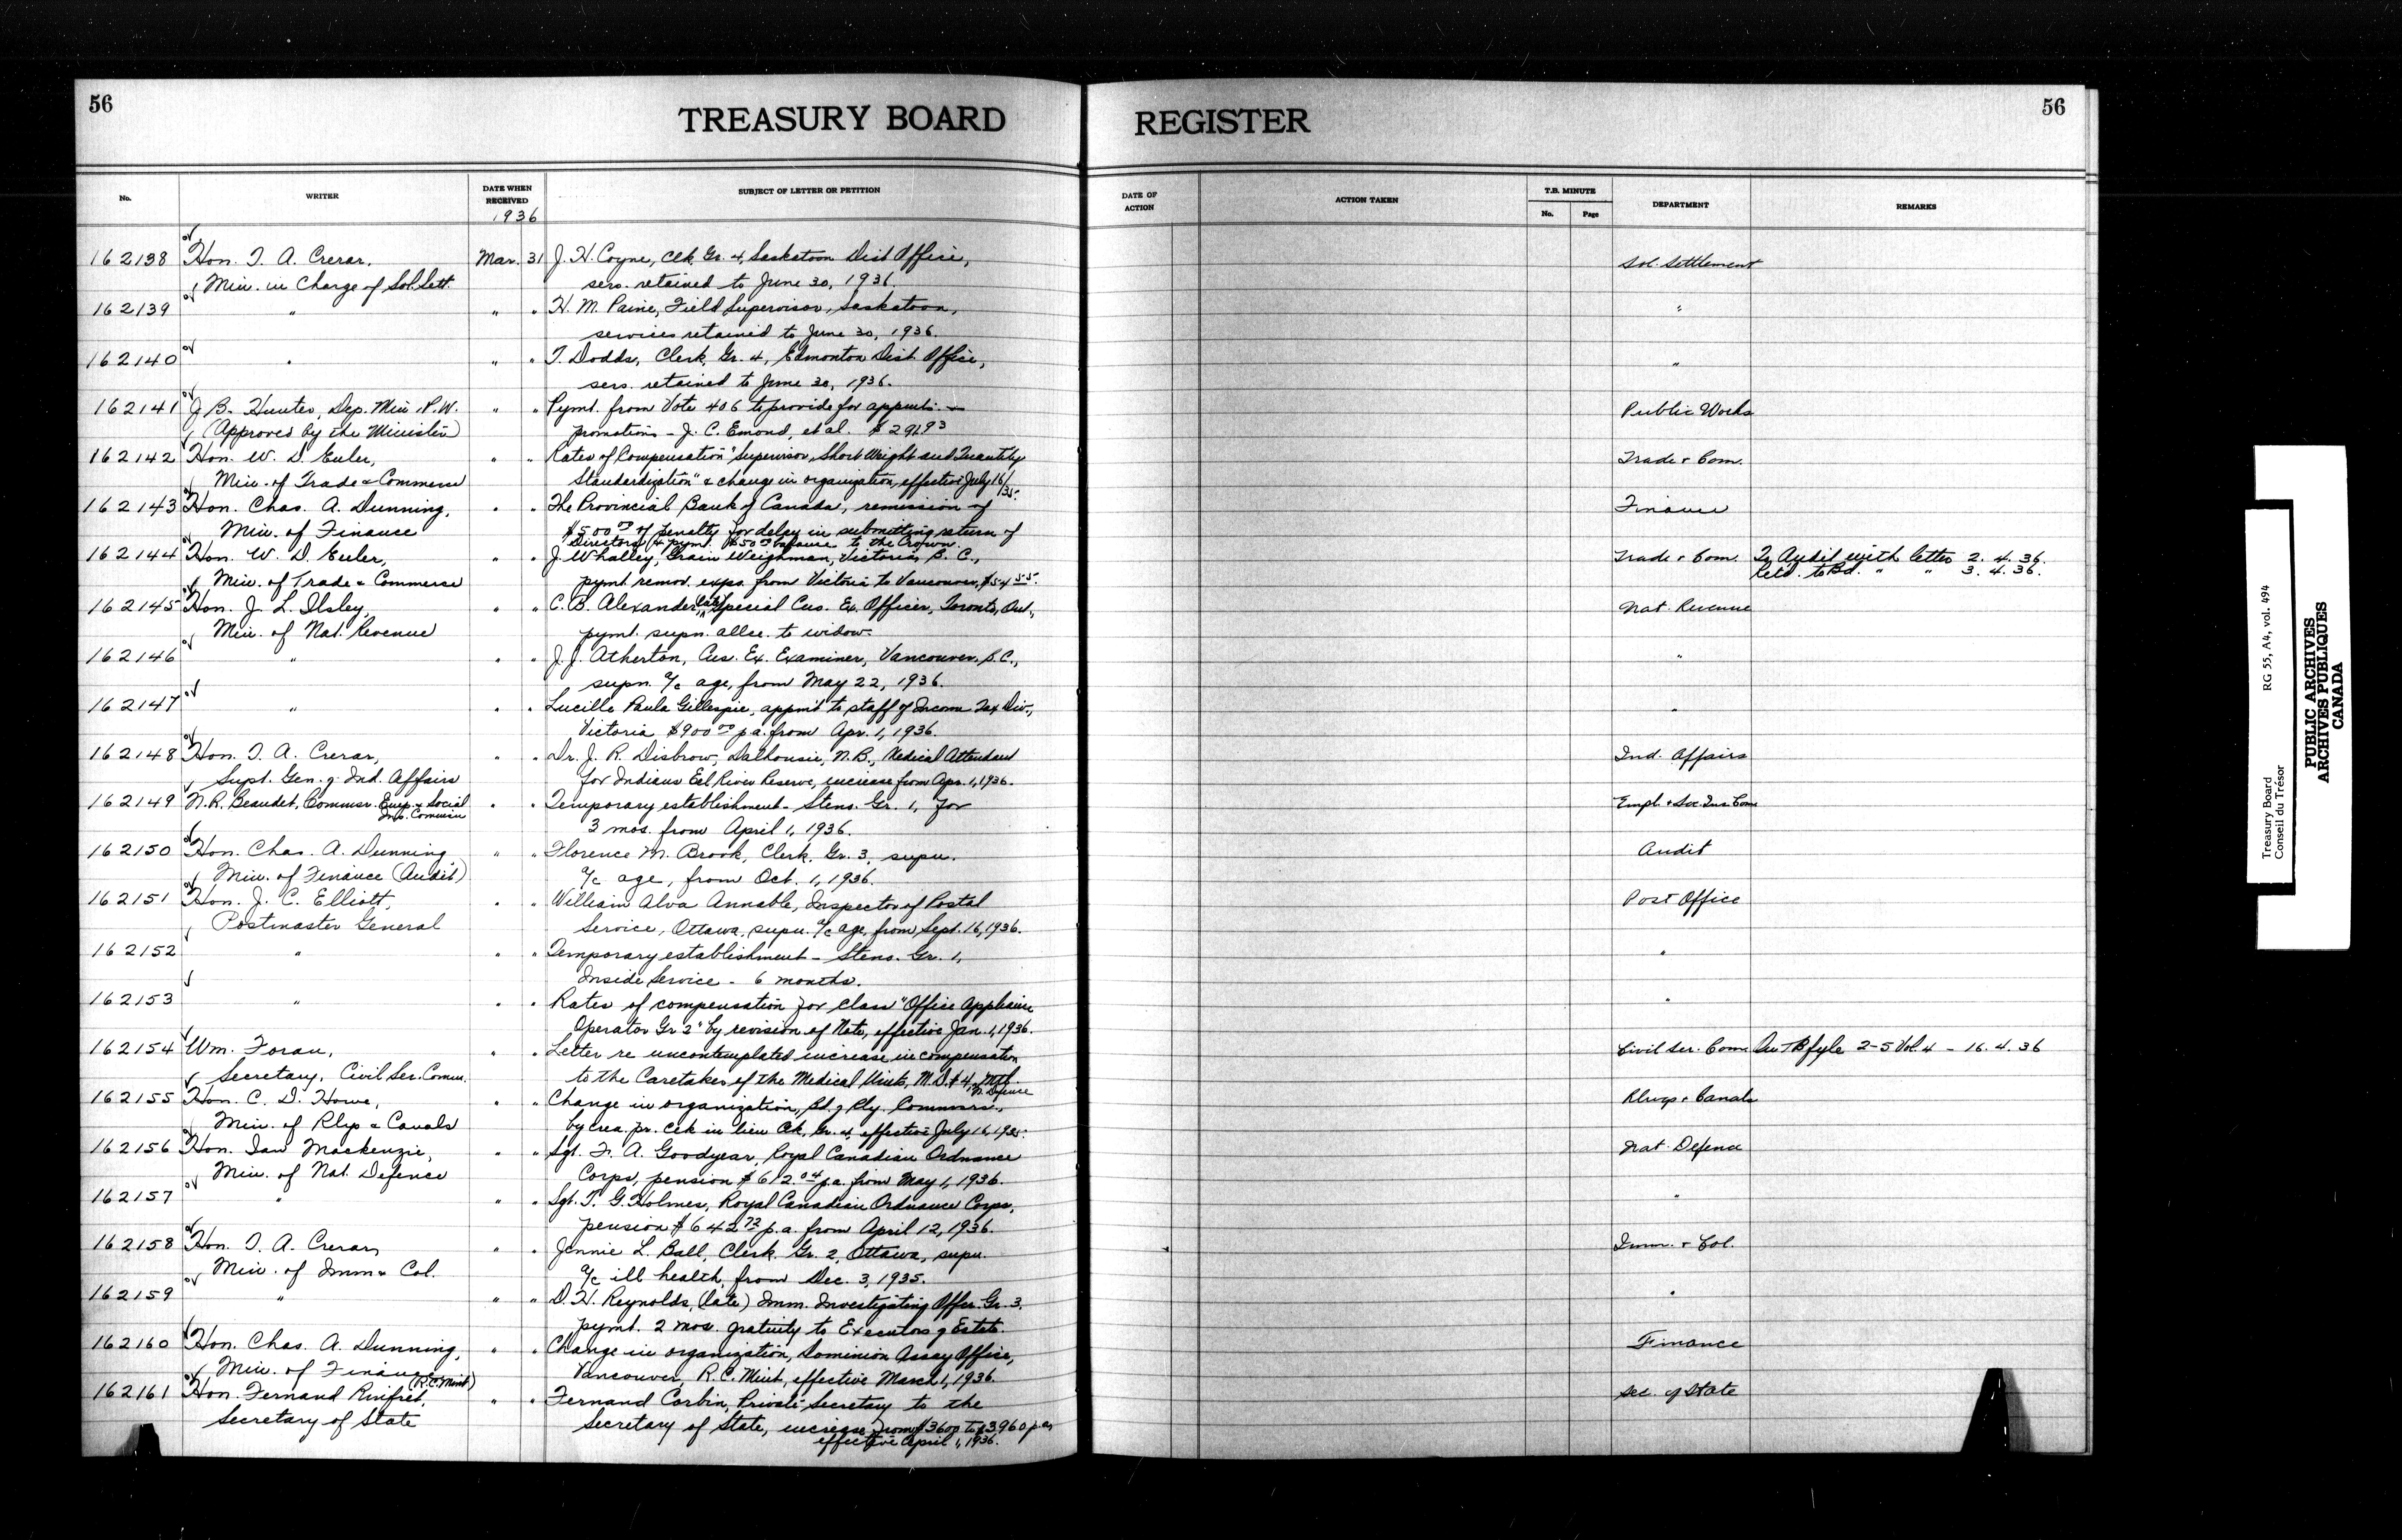 56
TREASURY BOARD REGISTER
56
No. WRITER DATE WHEN RECEIVED SUBJECT OF LETTER OR PETITION DATE OF ACTION ACTION TAKEN T.B. MINUTE No. Page DEPARTMENT REMARKS
1936
162138 Hon. T. A. Crerar, Mar. 31 J. H. Coyne, Clk. Gr. 4, Saskatoon Dist Office, Sol. Settlement
Min. in Charge of Sol. Sett. sers. retained to June 30, 1936.
162139 " " " H. M. Paine, Field Supervisor, Saskatoon, "
services retained to June 30, 1936.
162140 " " " T. Dodds, Clerk, Gr. 4, Edmonton Dist. Office, "
sers. retained to June 30, 1936.
162141 J. B. Hunter, Dep. Min. P.W. " " Pymt. from Vote 406 to provide for appmts. Public Works
(Approved by the Minister) promotions - J. C. Emond, et al. $291.93
162142 Hon. W. D. Euler, " " Rates of Compensation "Supervisor, Short Weight and Quantity Trade & Com.
Min. of Trade & Commerce Standardization" & change in organization, effective July 16/35.
162143 Hon. Chas. A. Dunning, " " The Provincial Bank of Canada, remission of Finance
Min. of Finance $500.00 of penalty for delay in submitting return of
Directors & pymt. $50.00 balance to the Crown.
162144 Hon. W. D. Euler, " " J. Whalley, Grain Weighman, Victoria, B. C., Trade & Com. To Audit with letter 2. 4. 36.
Min. of Trade & Commerce pymt. remov. exps. from Victoria to Vancouver, $54.55. Retd. to Bd. " " 3. 4. 36.
162145 Hon. J. L. Ilsley, " " C. B. Alexander, (late) Special Cus. Ex. Officer, Toronto, Ont., Nat. Revenue
Min. of Nat. Revenue pymt. supn. allce. to widow.
162146 " " " J. J. Atherton, Cus. Ex. Examiner, Vancouver, B.C., "
supn. a/c age, from May 22, 1936.
162147 " " " Lucille Paula Gillespie, appmt to staff of Income Tax Div., "
Victoria $900.00 p.a. from Apr. 1, 1936.
162148 Hon. T. A. Crerar, " " Dr. J. R. Disbrow, Dalhousie, N.B., Medical Attendant Ind. Affairs
Supt. Gen. of Ind. Affairs for Indians Eel River Reserve, increase from Apr. 1, 1936.
162149 N. R. Beaudet, Commsr. Emp. & Social Ins. Commsn " " Temporary establishment - Steno. Gr. 1, for Empl. & Soc. Ins. Com
3 mos. from April 1, 1936.
162150 Hon. Chas. A. Dunning " " Florence M. Brook, Clerk, Gr. 3, supn. Audit
Min. of Finance (Audit) a/c age, from Oct. 1, 1936.
162151 Hon. J. C. Elliott, " " William Alva Annable, Inspector of Postal Post Office
Postmaster General Service, Ottawa, supn. a/c age, from Sept. 16, 1936.
162152 " " " Temporary establishment - Steno. Gr. 1, "
Inside Service - 6 months.
162153 " " " Rates of compensation for class "Office Appliance "
Operator Gr 2" by revision of Note, effective Jan. 1, 1936.
162154 Wm. Foran, " " Letter re uncontemplated increase in compensation Civil Ser. Com. On TB fyle 2-5 Vol. 4 - 16. 4. 36
Secretary, Civil Ser. Comm. to the Caretaker of the Medical Units, M.D. #4, Mtl. N. Defence
162155 Hon. C. D. Howe, " " Change in organization, Bd. of Rly. Commsrs., Rlwys & Canals
Min. of Rlys & Canals by crea. pr. Clk in lieu Clk, Gr. 4, effective July 16, 1935.
162156 Hon. Ian Mackenzie, " " Sgt. F. A. Goodyear, Royal Canadian Ordnance Nat. Defence
Min. of Nat. Defence Corps, pension $612.04 p.a. from May 1, 1936.
162157 " " " Sgt. T. G. Holmes, Royal Canadian Ordnance Corps, "
pension $642.72 p.a. from April 12, 1936.
162158 Hon. T. A. Crerar, " " Jennie L. Ball, Clerk, Gr. 2, Ottawa, supn. Imm. & Col.
Min. of Imm & Col. a/c ill health, from Dec. 3, 1935.
162159 " " " D. H. Reynolds, (late) Imm. Investigating Offcr. Gr. 3, "
pymt. 2 mos. gratuity to Executors of Estate.
162160 Hon. Chas. A. Dunning, " " Change in organization, Dominion Assay Office, Finance
Min. of Finance (R.C. Mint) Vancouver, R. C. Mint, effective March 1, 1936.
162161 Hon. Fernand Rinfret, " " Fernand Corbin, Private Secretary to the Sec. of State
Secretary of State Secretary of State, increase from $3600 to $3960 p.a.
effective April 1, 1936.
Treasury Board RG 55, A4, vol. 494
Conseil du Trésor
PUBLIC ARCHIVES
ARCHIVES PUBLIQUES
CANADA